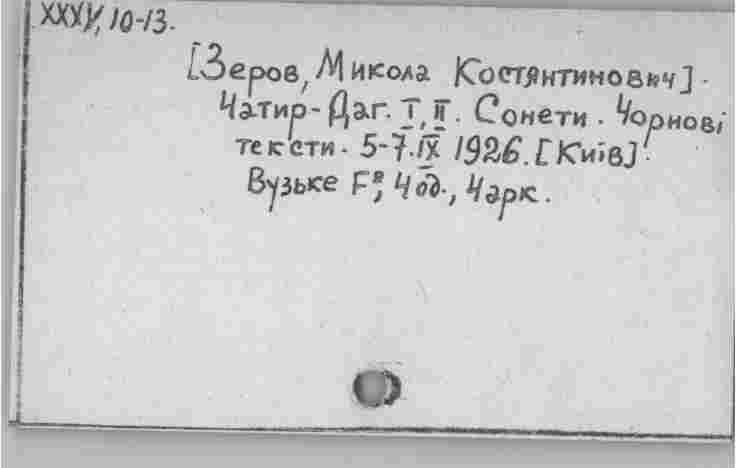 XXXV, 10-13.
[Зеров, Микола Костянтинович].
Чатир-Даг. I, II. Сонети. Чорнові
тексти. 5-7.IX 1926. [Київ].
Вузьке F°, 4 од., 4 арк.